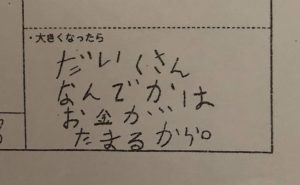 ・大きくなったら
だいくさん
なんでかは
お金が
たまるから。